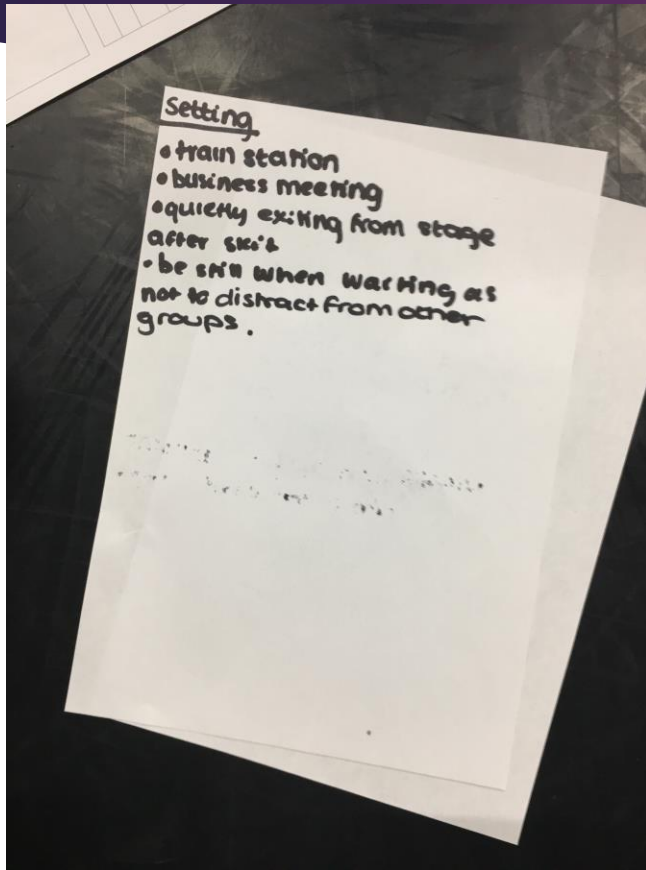 Setting
• train station
• business meeting
• quietly exiting from stage
after skit
• be still when waiting as
not to distract from other
groups.